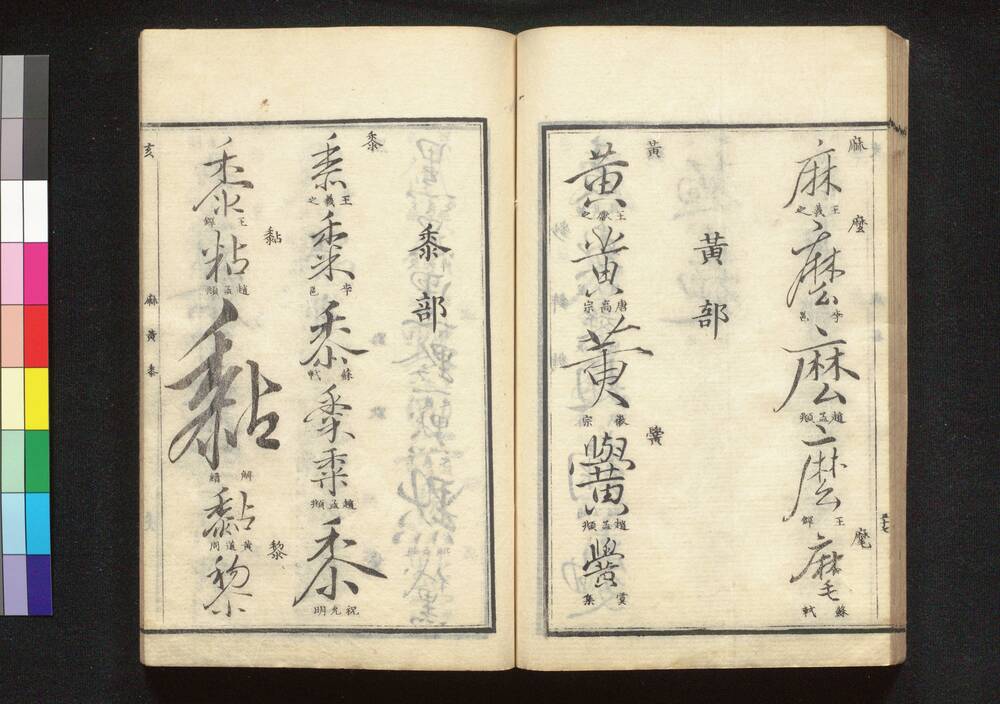 麻
麻
王羲之
麼
麼
李邕
麼
趙孟頫
麼
王鐸
麾
蘇軾
黃部
黃
黃
王獻之
黃
唐高宗
黃
徽宗
黌
黌
趙孟頫
黌
黍部
黍
黍
王羲之
黍
李邕
黍
蘇軾
黍
黍
趙孟頫
黍
祝允明
黍
王鐸
黏
粘
趙孟頫
黏
解縉
黏
黃道周
黎
黎
玄
麻黃黍